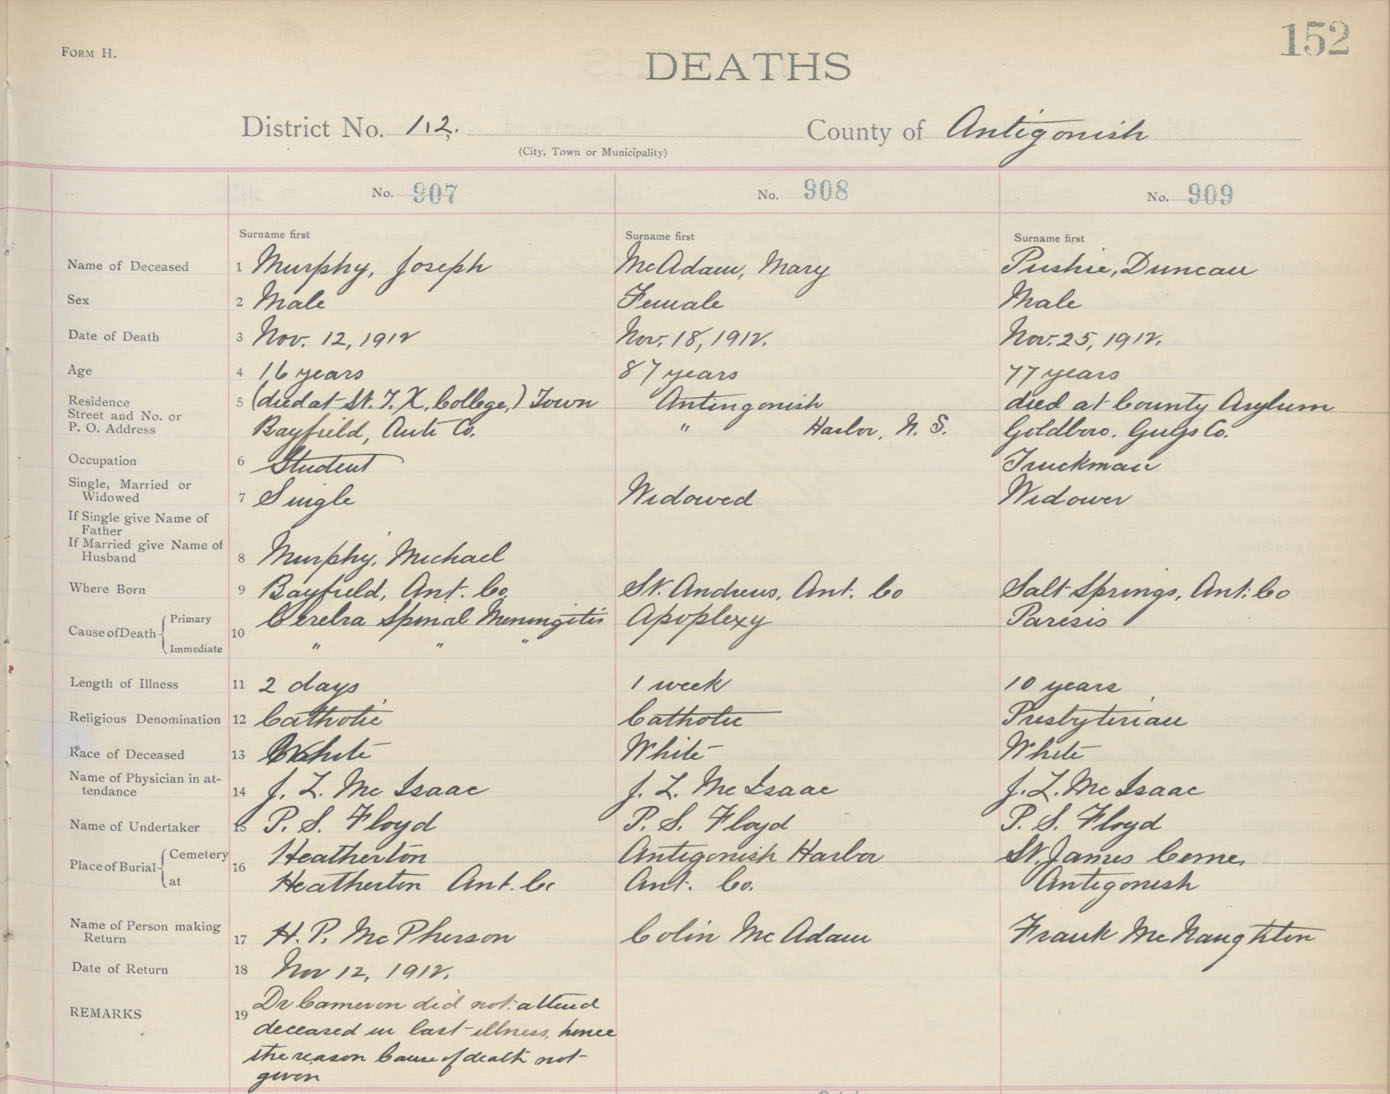 152
FORM H.
DEATHS
District No. 112. County of Antigonish
(City, Town or Municipality)
No. 907 No. 908 No. 909
Surname first Surname first Surname first
Name of Deceased 1 Murphy, Joseph McAdam, Mary Pushie, Duncan
Sex 2 Male Female Male
Date of Death 3 Nov. 12, 1912 Nov. 18, 1912. Nov. 25, 1912.
Age 4 16 years 87 years 77 years
Residence 5 (died at St. F. X. College,) Town Antingonish died at County Asylum
Street and No. or
P. O. Address Bayfield, Anti Co. " Harbor, N. S. Goldboro. Guys Co.
Occupation 6 Student Truckman
Single, Married or
Widowed 7 Single Widowed Widower
If Single give Name of
Father
If Married give Name of
Husband 8 Murphy, Michael
Where Born 9 Bayfield, Ant. Co. St. Andrews, Ant. Co Salt Springs, Ant. Co
Cause of Death Primary 10 Cerebra Spinal Meningitis Apoplexy Paresis
Immediate " " "
Length of Illness 11 2 days 1 week 10 years
Religious Denomination 12 Catholic Catholic Presbyterian
Race of Deceased 13 White White White
Name of Physician in at-
tendance 14 J. L. McIsaac J. L. McIsaac J. L. McIsaac
Name of Undertaker 15 P. S. Floyd P. S. Floyd P. S. Floyd
Place of Burial Cemetery 16 Heatherton Antigonish Harbor St. James Ceme.
at Heatherton Ant. Co Ant. Co. Antigonish
Name of Person making
Return 17 H. P. McPherson Colin McAdam Frank McNaughton
Date of Return 18 Nov 12, 1912.
REMARKS 19 Dr Cameron did not attend
deceased in last illness, hence
the reason Cause of death not
given